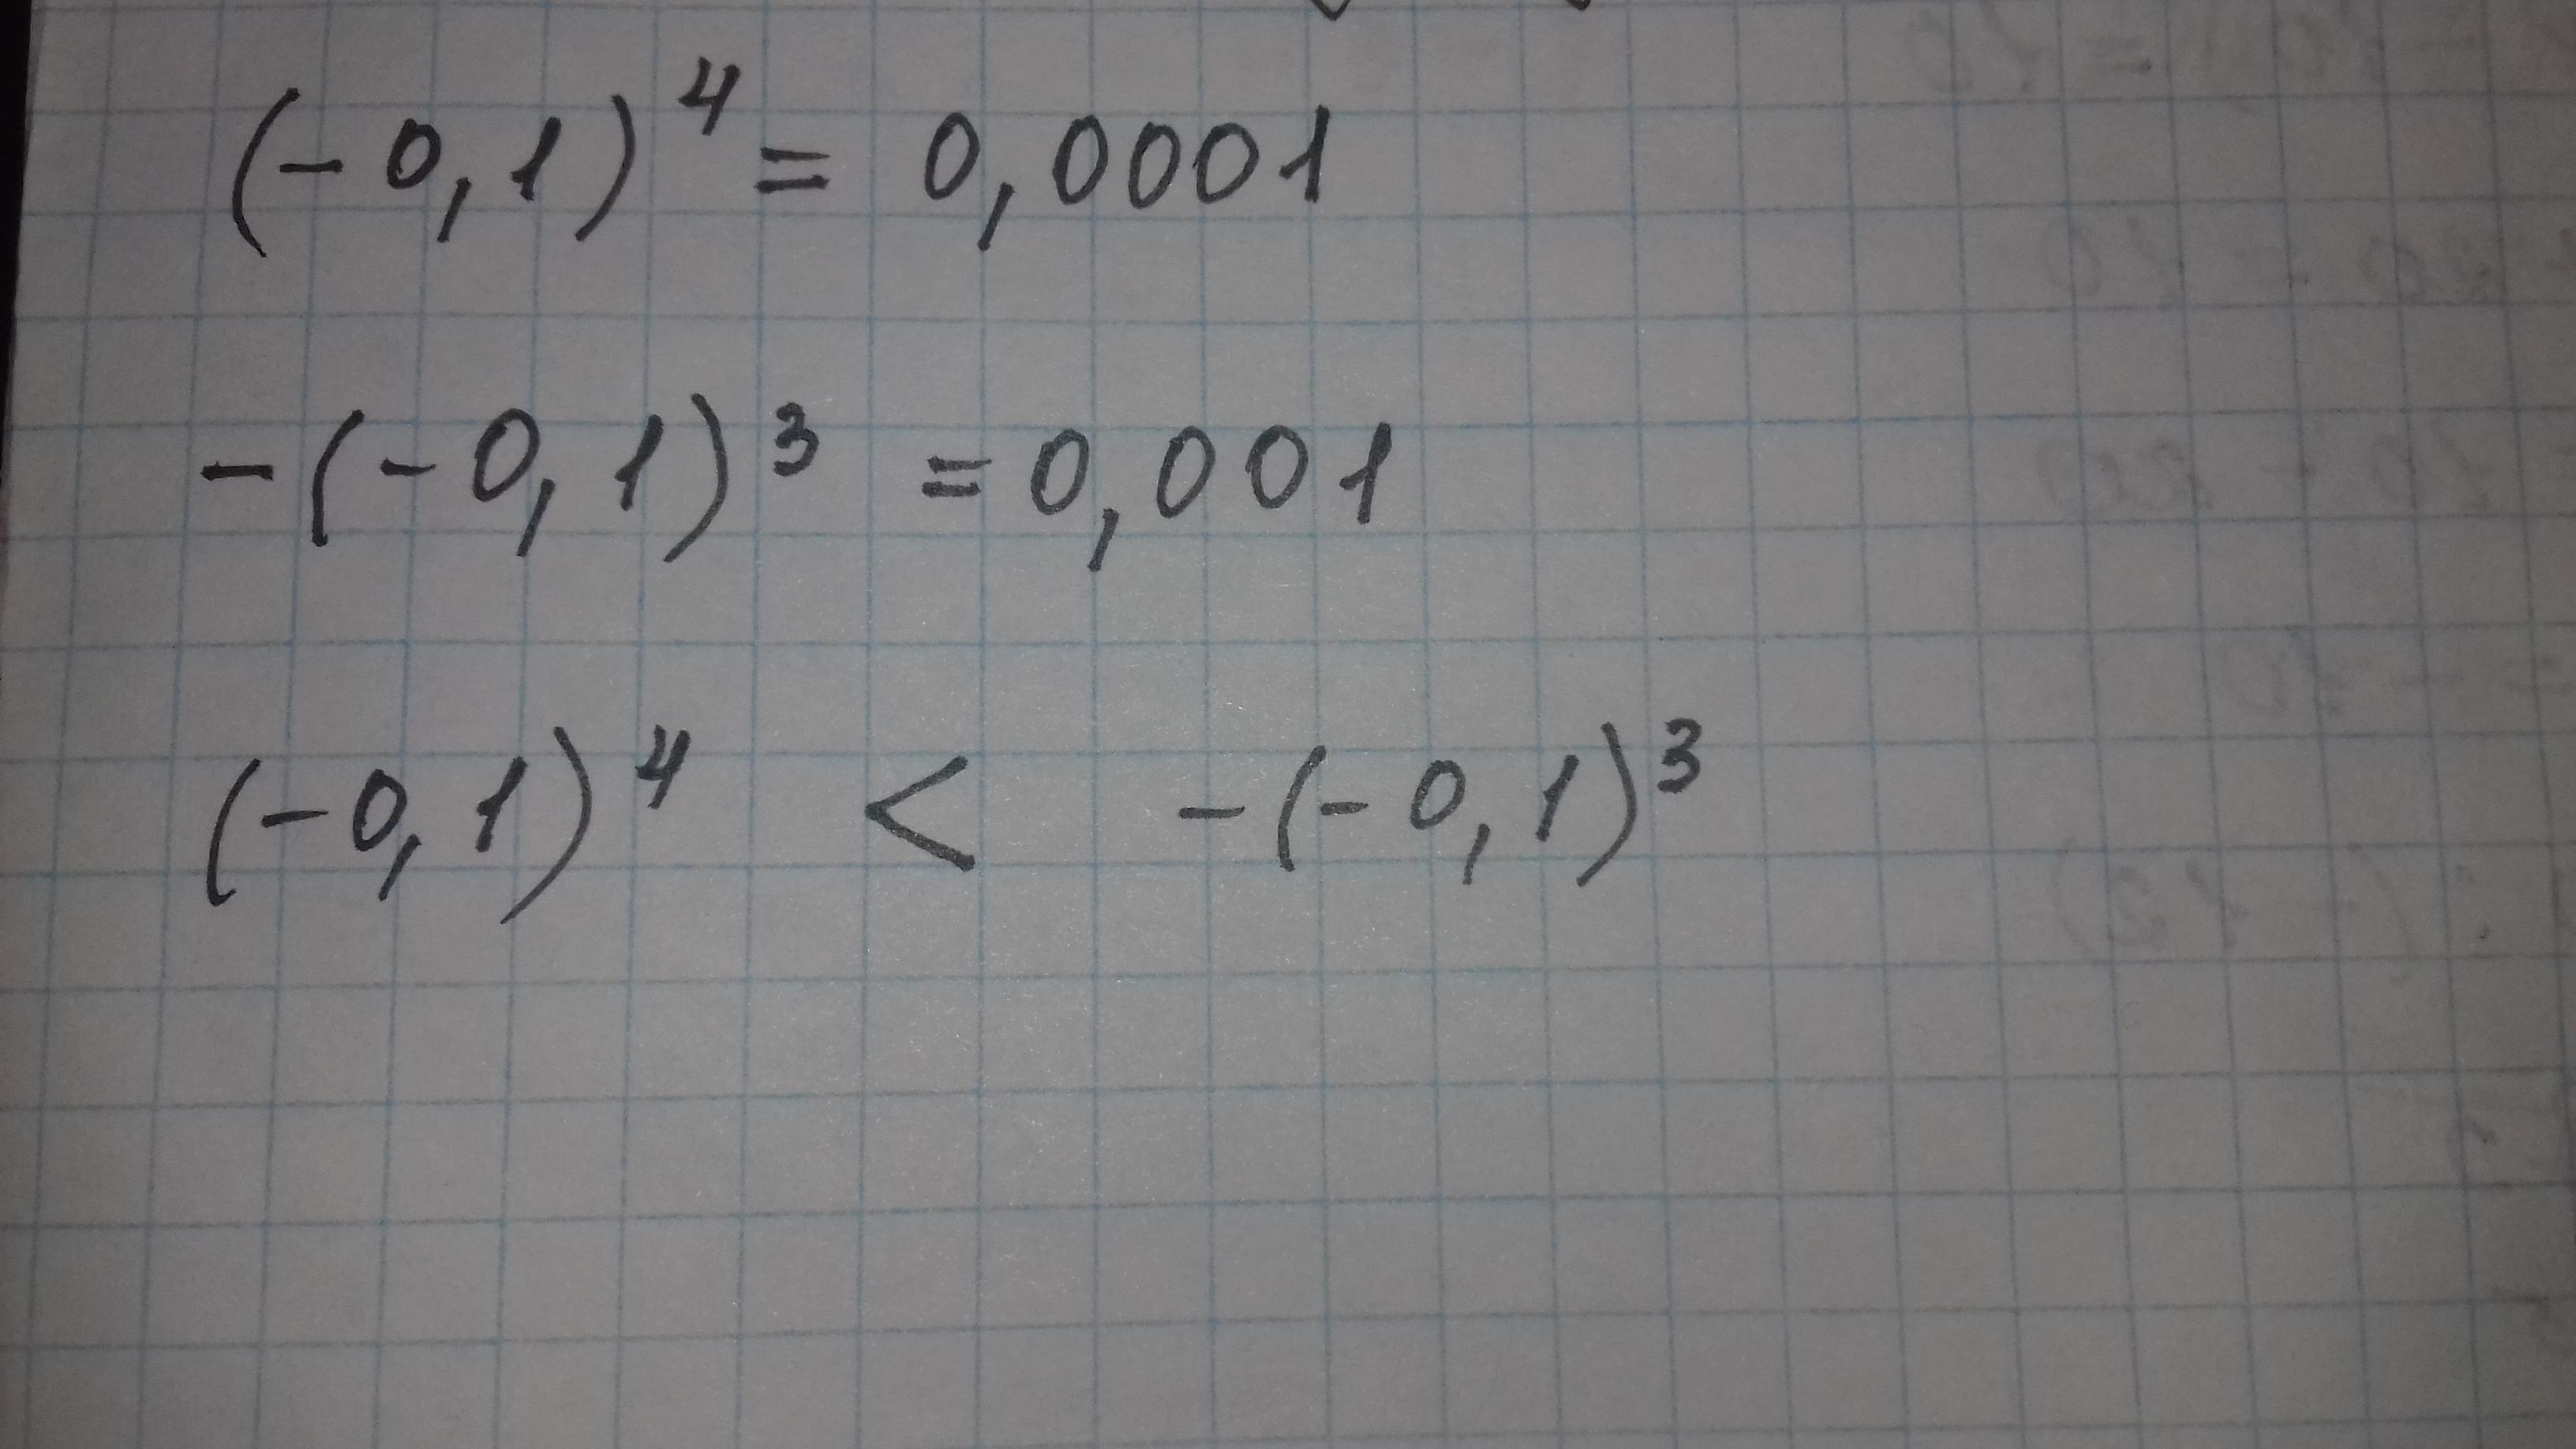 (-0,1)⁴ = 0,0001
-(-0,1)³ = 0,001
(-0,1)⁴ < -(-0,1)³